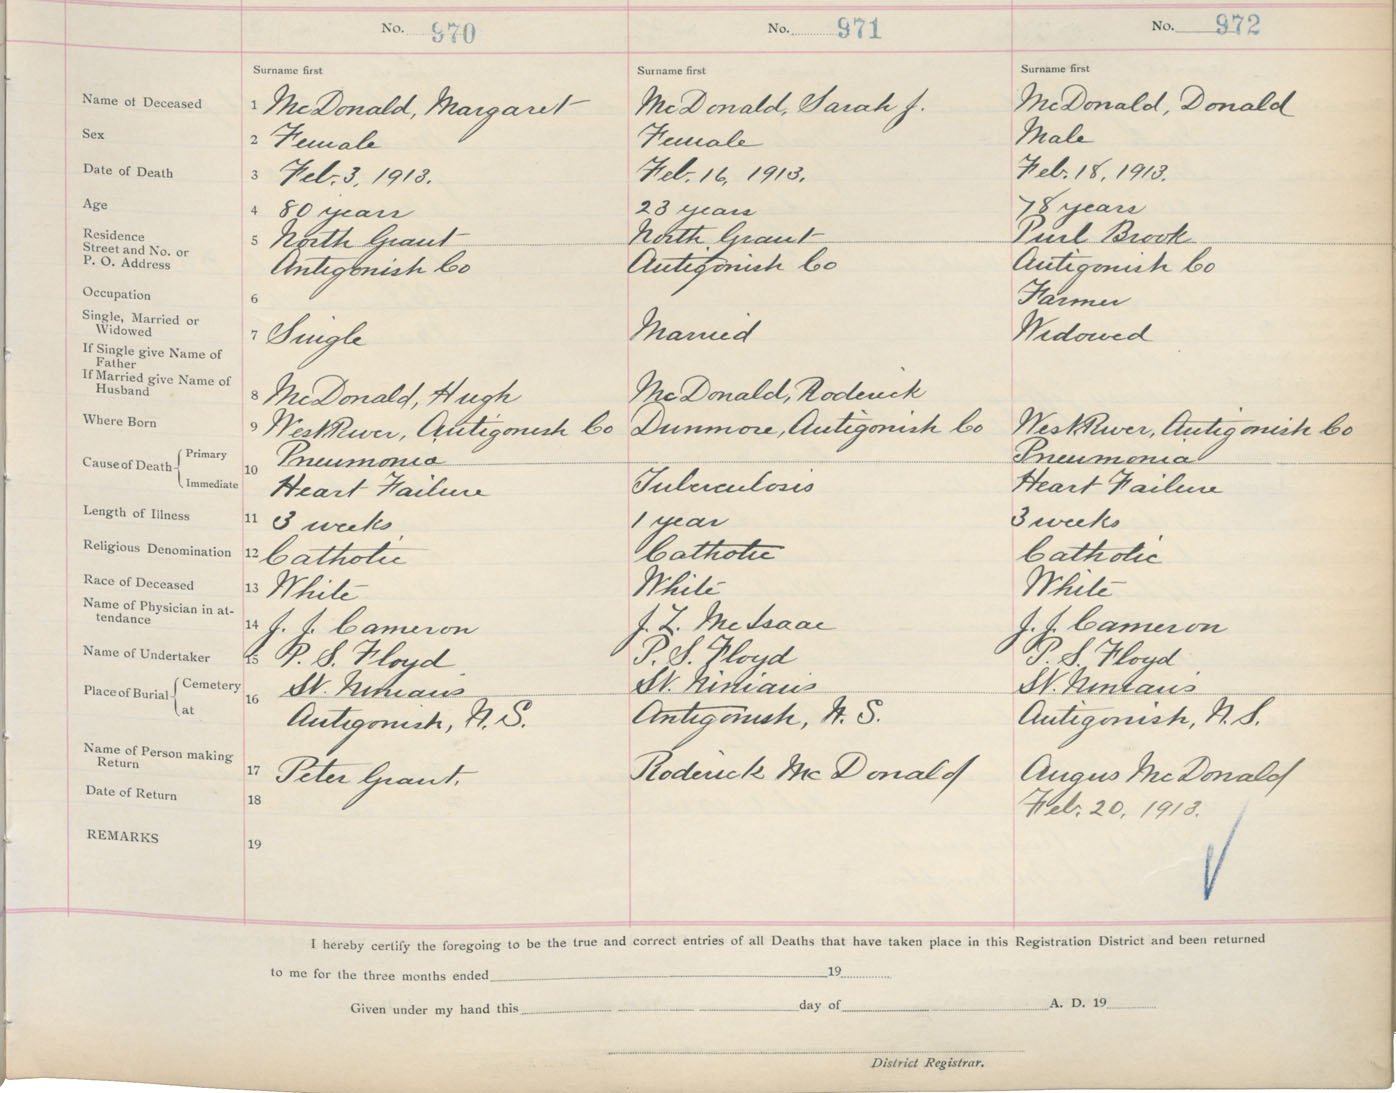 No. 970 No. 971 No. 972
Surname first Surname first Surname first
Name of Deceased 1 McDonald, Margaret McDonald, Sarah J. McDonald, Donald
Sex 2 Female Female Male
Date of Death 3 Feb. 3, 1913. Feb. 16, 1913. Feb. 18, 1913.
Age 4 80 years 23 years 78 years
Residence
Street and No. or 5 North Grant North Grant Purl Brook
P. O. Address Antigonish Co Antigonish Co Antigonish Co
Occupation 6 Farmer
Single, Married or
Widowed 7 Single Married Widowed
If Single give Name of
Father
If Married give Name of
Husband 8 McDonald, Hugh McDonald, Roderick
Where Born 9 West River, Antigonish Co Dunmore, Antigonish Co West River, Antigonish Co
Cause of Death Primary 10 Pneumonia Pneumonia
Immediate Heart Failure Tuberculosis Heart Failure
Length of Illness 11 3 weeks 1 year 3 weeks
Religious Denomination 12 Catholic Catholic Catholic
Race of Deceased 13 White White White
Name of Physician in at-
tendance 14 J. J. Cameron J. L. McIsaac J. J. Cameron
Name of Undertaker 15 P. S. Floyd P. S. Floyd P. S. Floyd
Place of Burial Cemetery 16 St. Ninian's St. Ninian's St. Ninian's
at Antigonish, N. S. Antigonish, N. S. Antigonish, N. S.
Name of Person making
Return 17 Peter Grant. Roderick McDonald Angus McDonald
Date of Return 18 Feb. 20, 1913.
REMARKS 19
I hereby certify the foregoing to be the true and correct entries of all Deaths that have taken place in this Registration District and been returned
to me for the three months ended 19
Given under my hand this day of A. D. 19
District Registrar.